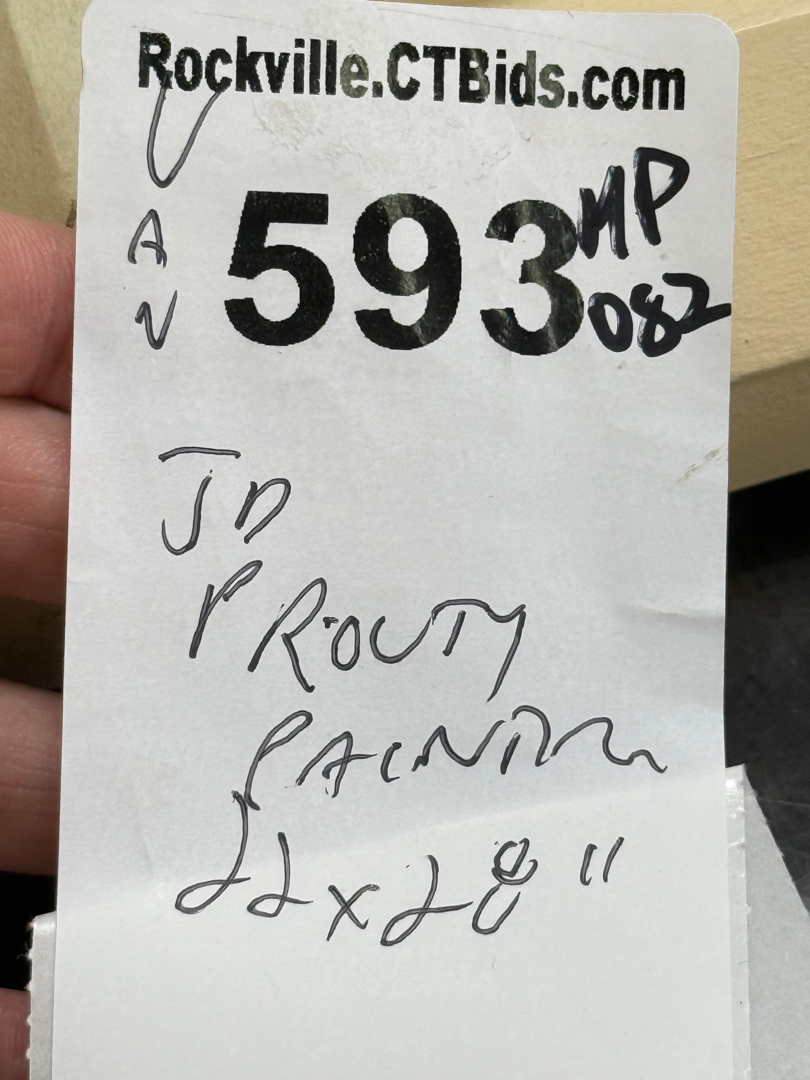 Rockville.CTBids.com
VAN
593
MP
082
JD
PROUTY
PAINTING
22x28"